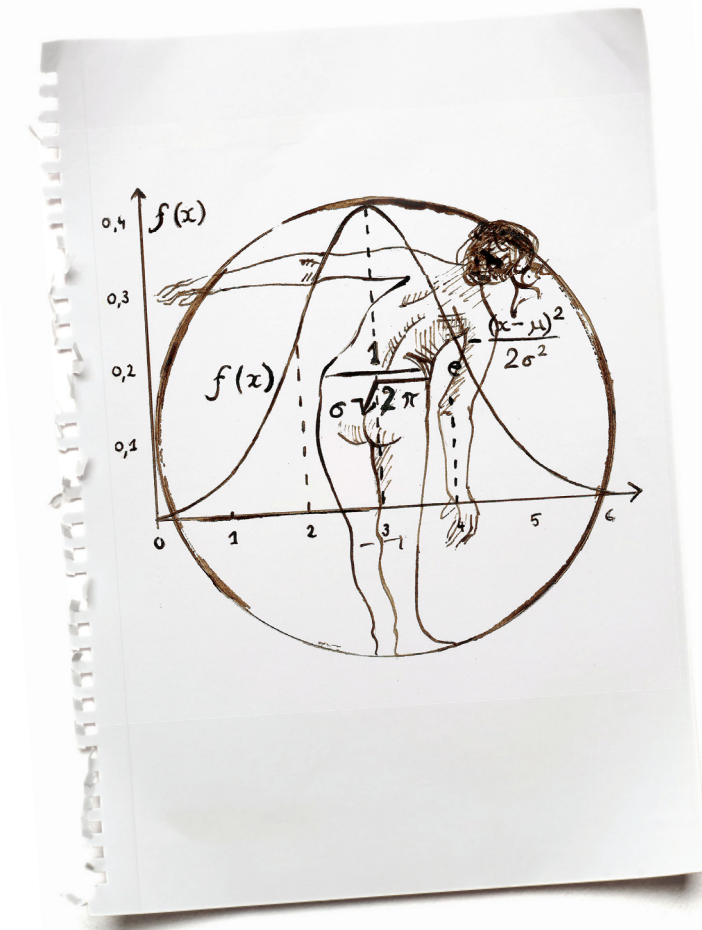 0,4 f(x)
0,3
0,2
0,1
f(x)
1
σ√2π
e
- (x-μ)²
2σ²
0 1 2 3 4 5 6